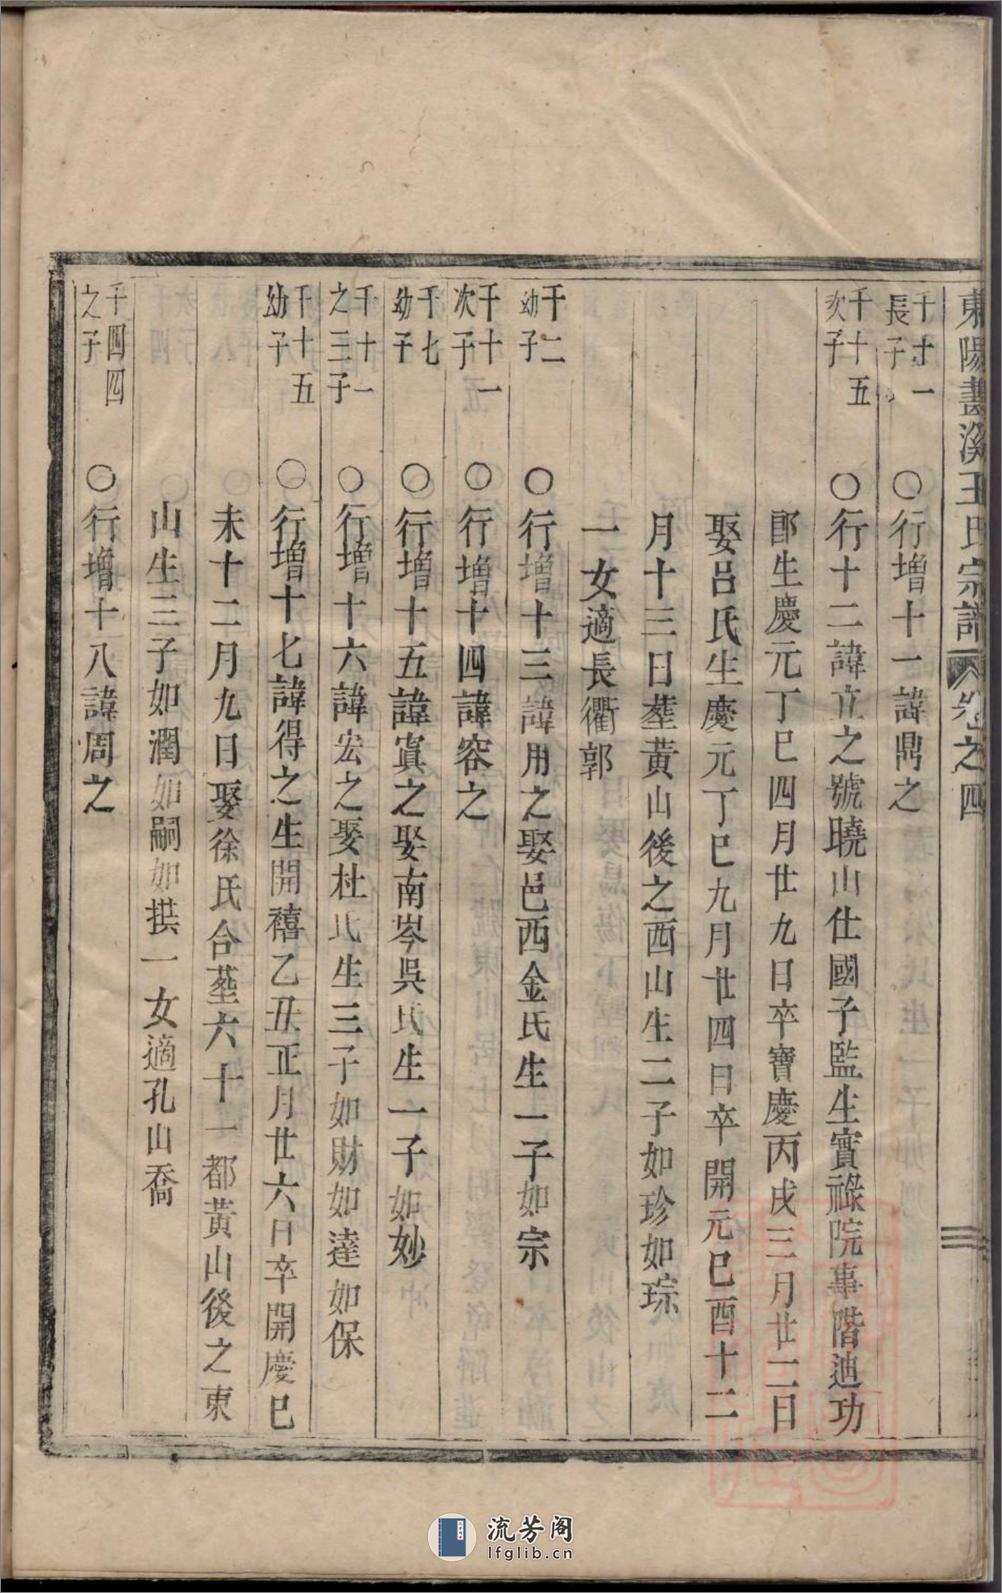 東陽畫溪王氏宗譜 卷之四
千十一長子 ○行增十一諱鼎之
千十五次子 ○行十二諱立之號曉山仕國子監生實祿院事階迪功
郎生慶元丁巳四月廿九日卒寶慶丙戌三月廿二日
娶呂氏生慶元丁巳九月廿四日卒開元巳酉十二
月十三日塟黃山後之西山生二子如珍如琮
一女適長衢郭
千二幼子 ○行增十三諱用之娶邑西金氏生一子如宗
千十一次子 ○行增十四諱容之
千七幼子 ○行增十五諱寘之娶南岑吳氏生一子如妙
千十一之三子 ○行增十六諱宏之娶杜氏生三子如財如達如保
千十五幼子 ○行增十七諱得之生開禧乙丑正月廿六日卒開慶巳
未十二月九日娶徐氏合塟六十一都黃山後之東
山生三子如潤如嗣如拱一女適孔山喬
千四四之子 ○行增十八諱周之
流芳阁
lfglib.cn